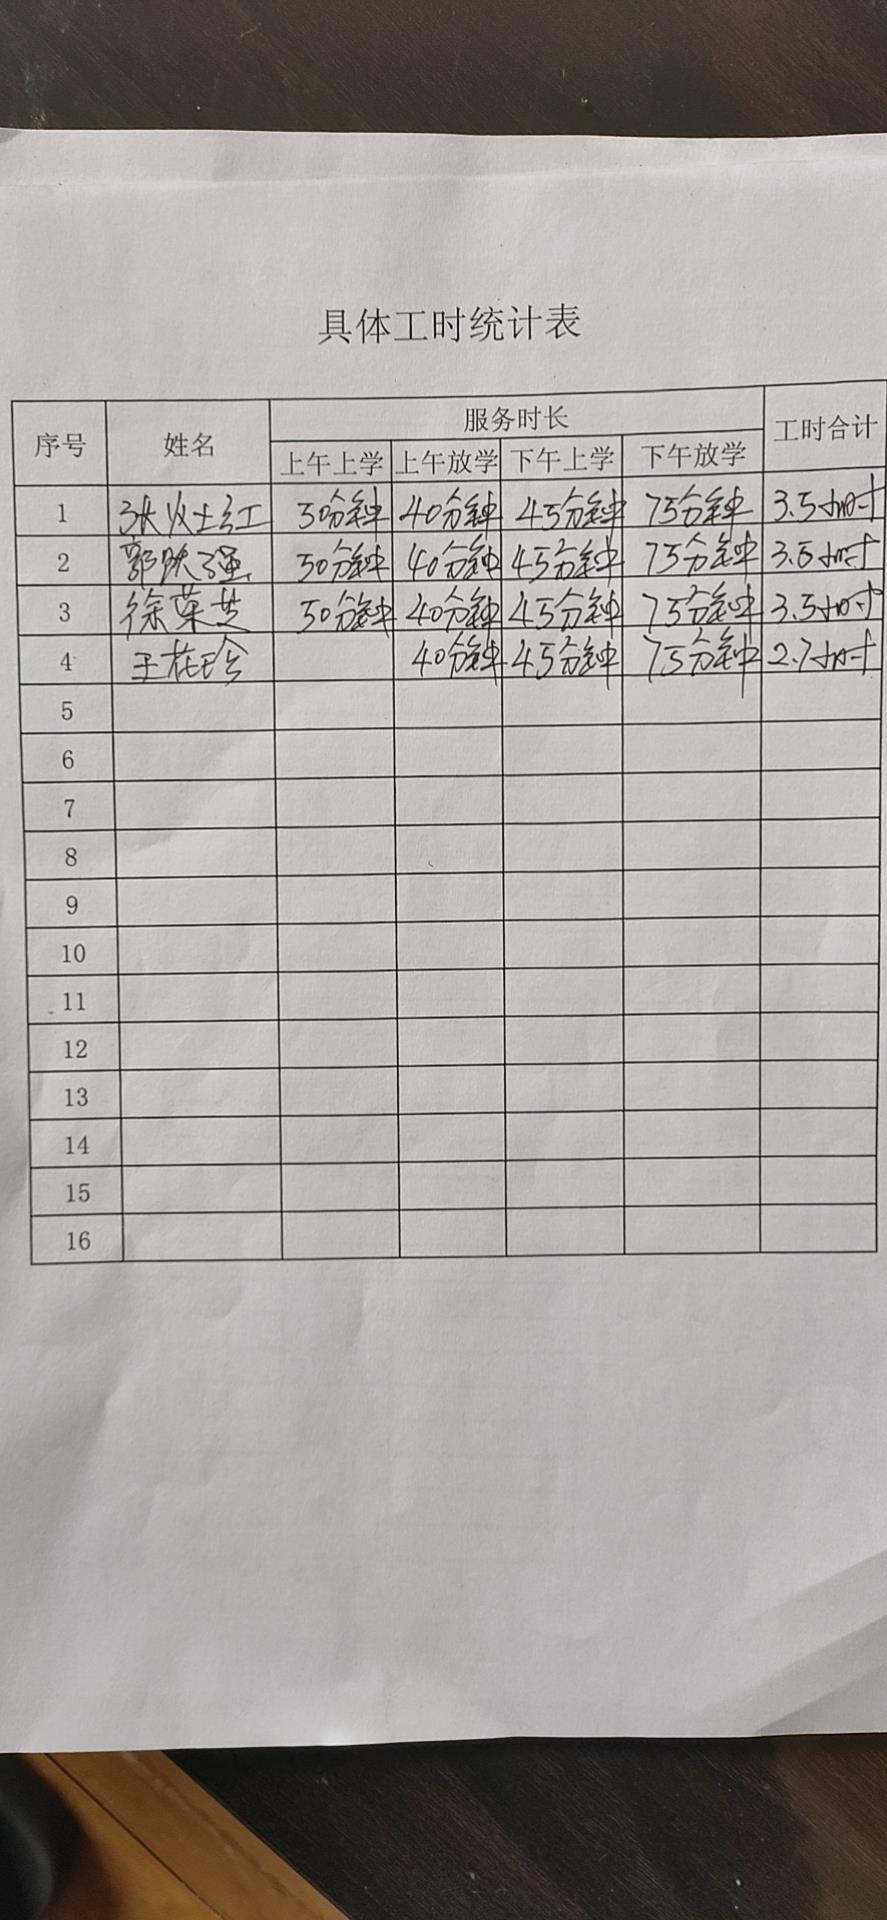 具体工时统计表
序号 姓名 服务时长 工时合计
上午上学 上午放学 下午上学 下午放学
1 张火土红 50分钟 40分钟 45分钟 75分钟 3.5小时
2 郭跃强 50分钟 40分钟 45分钟 75分钟 3.5小时
3 徐菜芝 50分钟 40分钟 45分钟 75分钟 3.5小时
4 王花玲 40分钟 45分钟 75分钟 2.7小时
5
6
7
8
9
10
11
12
13
14
15
16